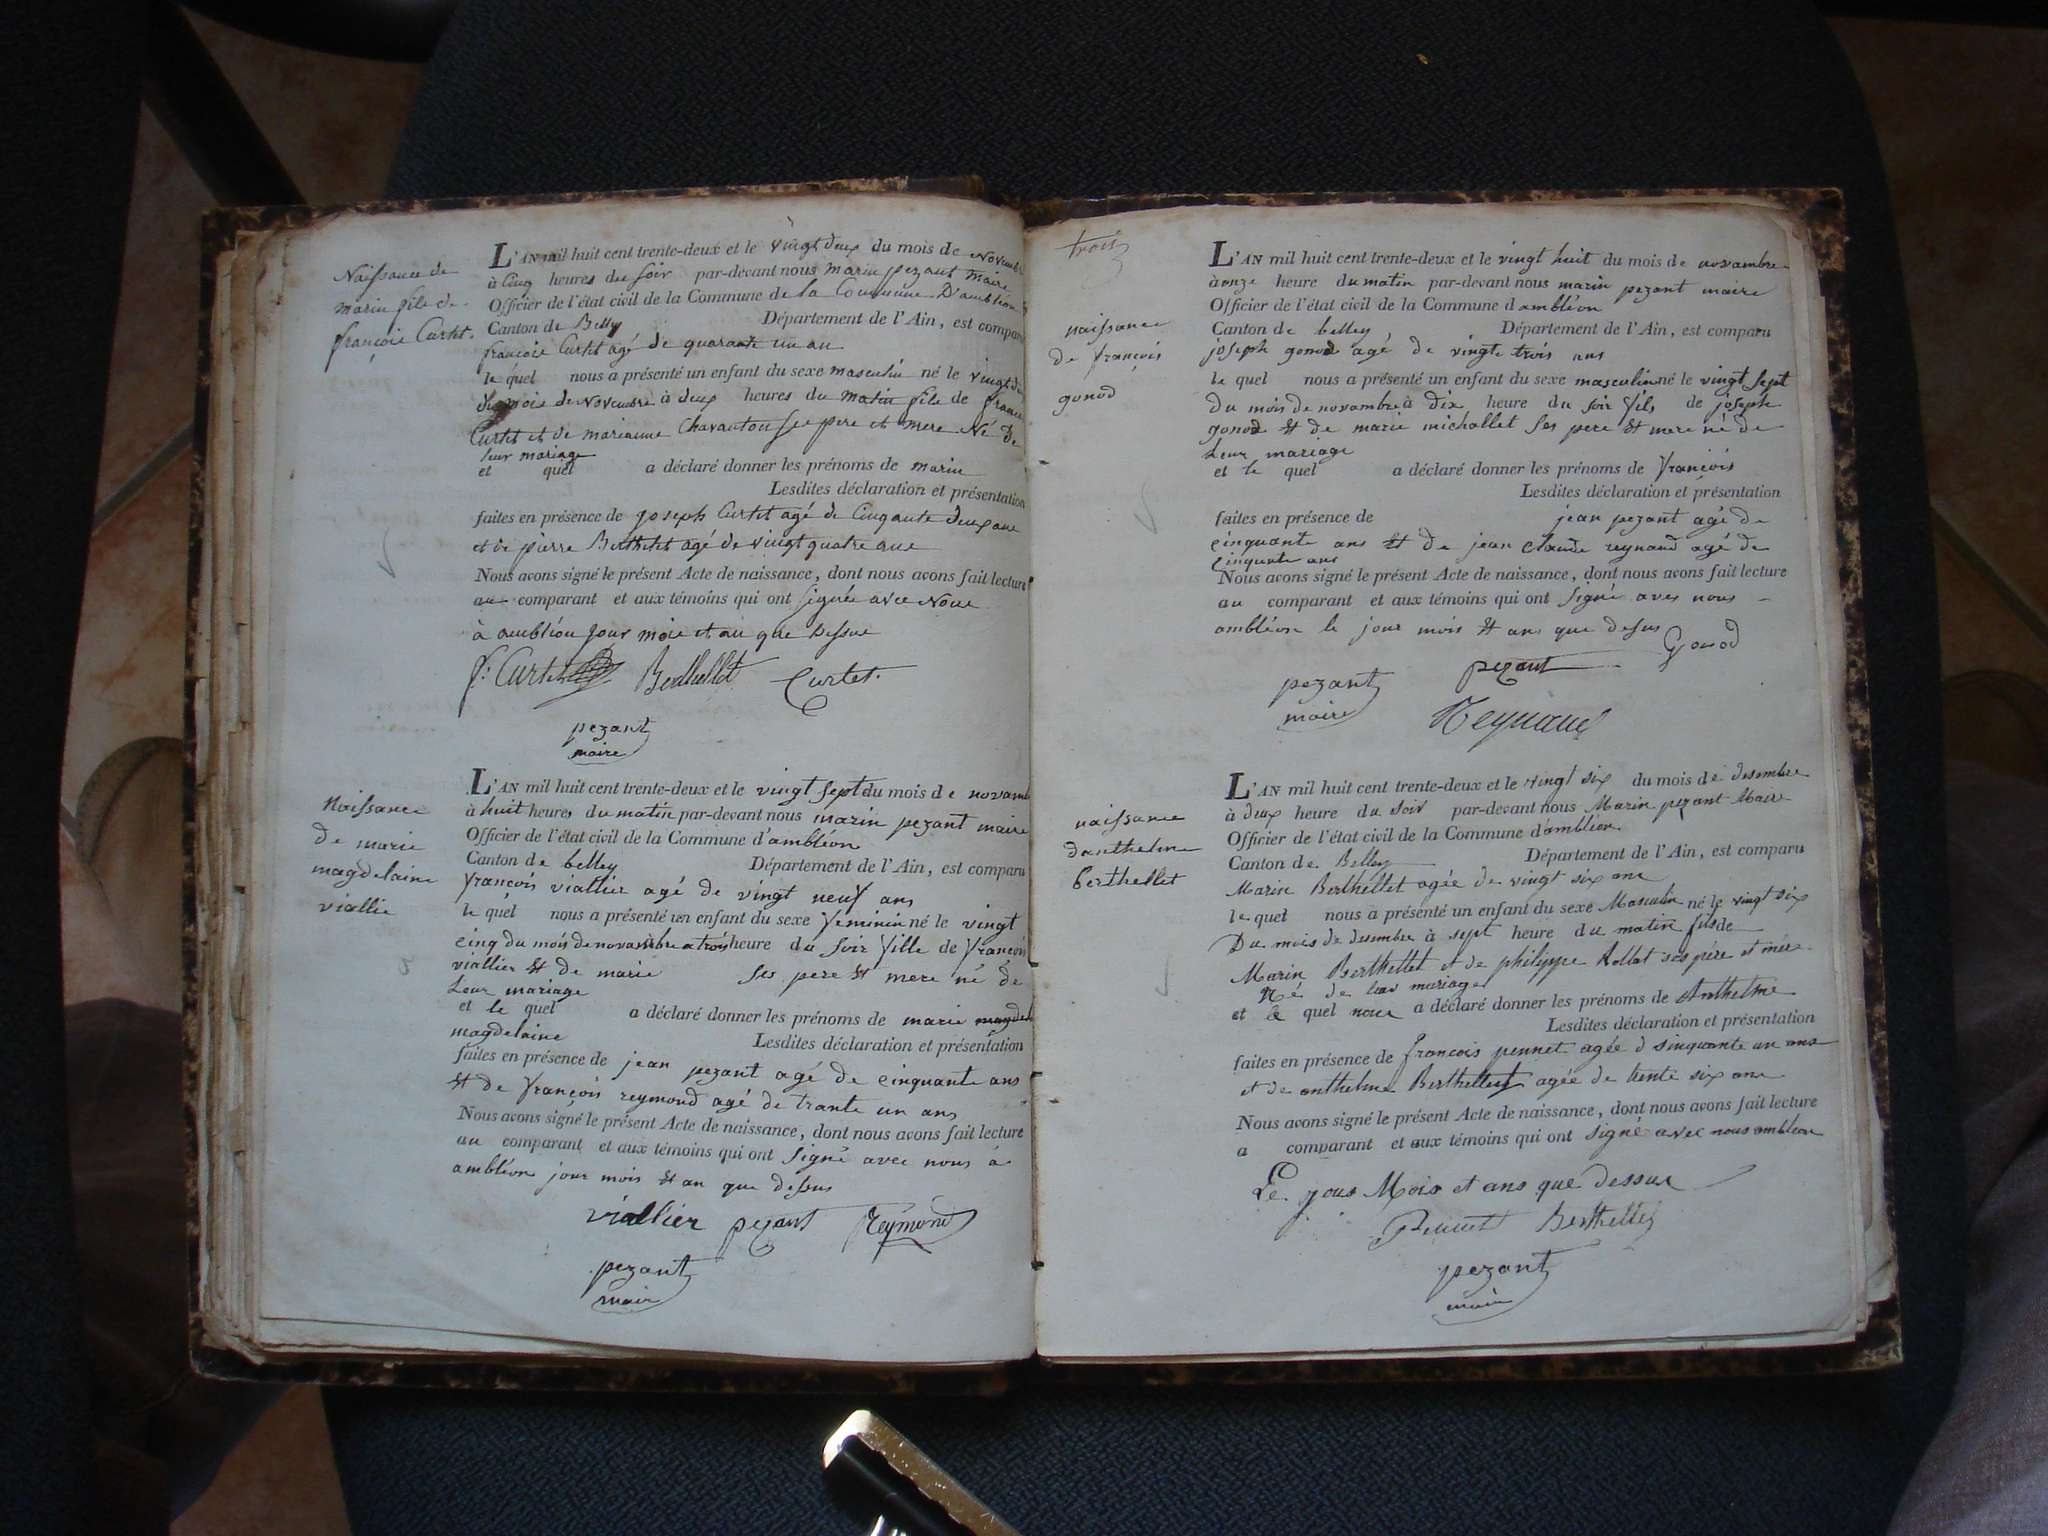 Naissance de
marin fils de
françois Curtet.
L'AN mil huit cent trente-deux et le vingt deux du mois de Novembre
à Cinq heures du soir par-devant nous marin pezant maire
Officier de l'état civil de la Commune de la Commune D'ambléon
Canton de Belley Département de l'Ain, est comparu
françois Curtet agé de quarante un an
le quel nous a présenté un enfant du sexe masculin né le vingt deux
du mois de Novembre à deux heures du matin fils de françois
Curtet et de marianne ses pere et mere Né De
leur mariage
et quel a déclaré donner les prénoms de marin
Lesdites déclaration et présentation
faites en présence de joseph Curtet agé de Cinquante deux ans
et de pierre Berthelet agé de vingt quatre ans
Nous avons signé le présent Acte de naissance, dont nous avons fait lecture
au comparant et aux témoins qui ont signés avec Nous
à ambléon jour mois et an que Dessus
f. Curtet Berthellet Curtet.
pezant
maire
Naissance
de marie
magdelaine
viallie
L'AN mil huit cent trente-deux et le vingt sept du mois de novambre
à huit heures du matin par-devant nous marin pezant maire
Officier de l'état civil de la Commune d'ambléon
Canton de belley Département de l'Ain, est comparu
françois viallier agé de vingt neuf ans
le quel nous a présenté un enfant du sexe feminin né le vingt
cinq du mois de novambre a trois heure du soir fille de françois
viallier et de marie ses pere et mere né de
Leur mariage
et le quel a déclaré donner les prénoms de marie
magdelaine Lesdites déclaration et présentation
faites en présence de jean pezant agé de cinquante ans
et de françois reymond agé de trante un ans
Nous avons signé le présent Acte de naissance, dont nous avons fait lecture
au comparant et aux témoins qui ont signé avec nous à
ambléon jour mois et an que dessus
viallier pezant Reymond
pezant
maire
trois
naissance
de françois
gonod
L'AN mil huit cent trente-deux et le vingt huit du mois de novambre
à onze heure du matin par-devant nous marin pezant maire
Officier de l'état civil de la Commune d'ambléon
Canton de belley, Département de l'Ain, est comparu
joseph gonod agé de vingte trois ans
le quel nous a présenté un enfant du sexe masculin né le vingt sept
du mois de novambre à dix heure du soir fils de joseph
gonod et de marie michallet ses pere et mere né de
Leur mariage
et le quel a déclaré donner les prénoms de françois
Lesdites déclaration et présentation
faites en présence de jean pezant agé de
cinquante ans et de jean claude reynaud agé de
cinquante ans
Nous avons signé le présent Acte de naissance, dont nous avons fait lecture
au comparant et aux témoins qui ont signé aves nous
ambléon le jour mois et ans que desus Gonod
pezant pezant
maire Reynaud
naissance
danthelme
berthellet
L'AN mil huit cent trente-deux et le vingt six du mois de desembre
à deux heure du soir par-devant nous Marin pezant Maire
Officier de l'état civil de la Commune d'ambléon
Canton de Belley Département de l'Ain, est comparu
Marin Berthellet agée de vingt six ans
le quel nous a présenté un enfant du sexe Masculin né le vingt six
Du mois de desembre à sept heure du matin fils de
Marin Berthellet et de philippe Rollat ses père et mère
Né de leur mariage
et le quel nous a déclaré donner les prénoms de Anthelme
Lesdites déclaration et présentation
faites en présence de françois pennet agée d sinquante un ans
et de anthelme Berthellet agée de trente six ans
Nous avons signé le présent Acte de naissance, dont nous avons fait lecture
a comparant et aux témoins qui ont signé avec nous ambléon
Le jour Mois et ans que dessus
Pennet Berthellet
pezant
maire